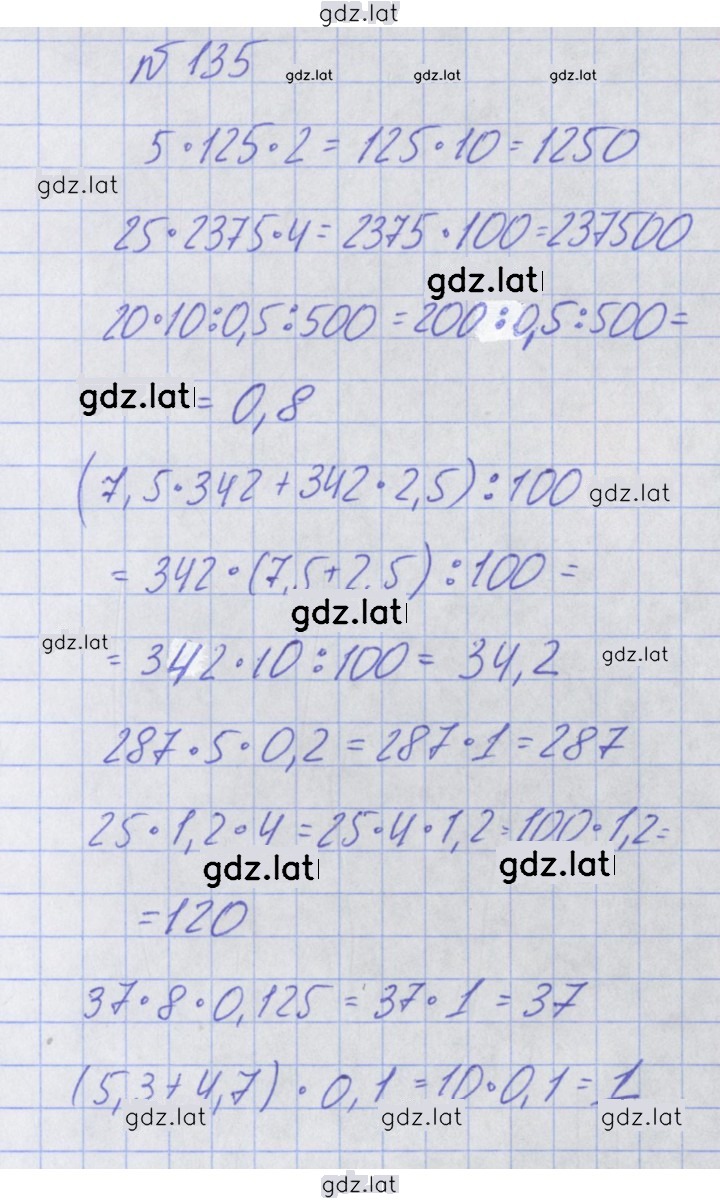 gdz.lat
№ 135
gdz.lat gdz.lat gdz.lat
5·125·2 = 125·10 = 1250
gdz.lat
25·2375·4 = 2375·100 = 237500
gdz.lat
20·10:0,5:500 = 200:0,5:500 =
gdz.lat = 0,8
(7,5·342 + 342·2,5):100 gdz.lat
= 342·(7,5+2,5):100 =
gdz.lat
gdz.lat = 342·10:100 = 34,2 gdz.lat
287·5·0,2 = 287·1 = 287
25·1,2·4 = 25·4·1,2 = 100·1,2 =
gdz.lat gdz.lat
= 120
37·8·0,125 = 37·1 = 37
(5,3+4,7)·0,1 = 10·0,1 = 1
gdz.lat gdz.lat gdz.lat
gdz.lat